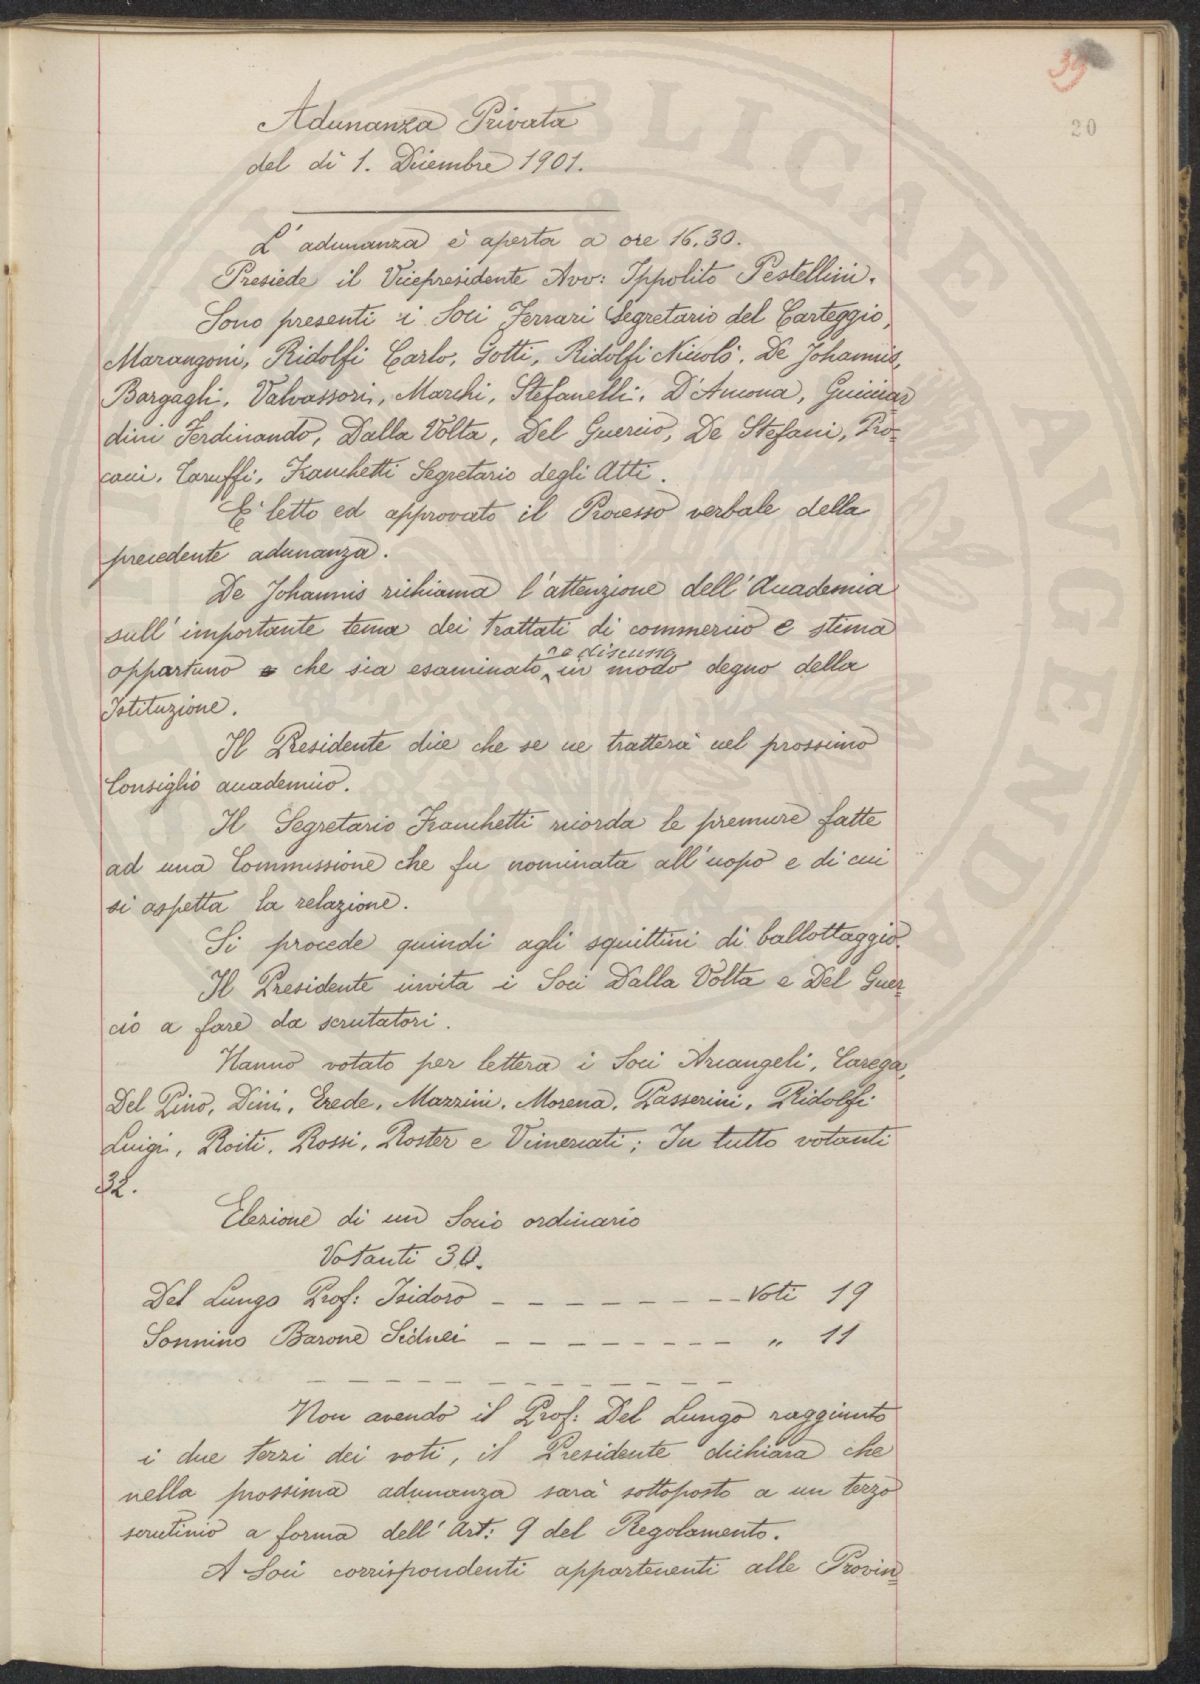 39
20
Adunanza Privata
del dì 1. Diciembre 1901.
L'adunanza è aperta a ore 16.30.
Presiede il Vicepresidente Avv: Ippolito Pestellini.
Sono presenti i Soci Ferrari Segretario del Carteggio,
Marangoni, Ridolfi Carlo, Gotti, Ridolfi Niccolò, De Johannis,
Bargagli, Valvassori, Marchi, Stefanelli, D'Ancona, Guicciar=
dini Ferdinando, Dalla Volta, Del Guercio, De Stefani, Pro=
cacci, Caruffi, Franchetti Segretario degli Atti.
E' letto ed approvato il Processo verbale della
precedente adunanza.
De Johannis richiama l'attenzione dell'Accademia
sull'importante tema dei trattati di commercio e stima
opportuno che sia esaminato in modo degno della
Istituzione.
Il Presidente dice che se ne tratterà nel prossimo
Consiglio accademico.
Il Segretario Franchetti ricorda le premure fatte
ad una Commissione che fu nominata all'uopo e di cui
si aspetta la relazione.
Si procede quindi agli squittini di ballottaggio.
Il Presidente invita i Soci Dalla Volta e Del Guer=
cio a fare da scrutatori.
Hanno votato per lettera i Soci Arcangeli, Carega,
Del Pino, Dini, Erede, Mazzini, Morena, Passerini, Ridolfi
Luigi, Roiti, Rossi, Roster e Vimercati; In tutto votanti
32.
Elezione di un Socio ordinario
Votanti 30.
Del Lungo Prof: Isidoro - - - - - - - - Voti 19
Sonnino Barone Sidnei - - - - - - - - " 11
Non avendo il Prof: Del Lungo raggiunto
i due terzi dei voti, il Presidente dichiara che
nella prossima adunanza sarà sottoposto a un terzo
scrutinio a forma dell'Art: 9 del Regolamento.
A Soci corrispondenti appartenenti alle Provin=
PUBLICAE AVGENDAE